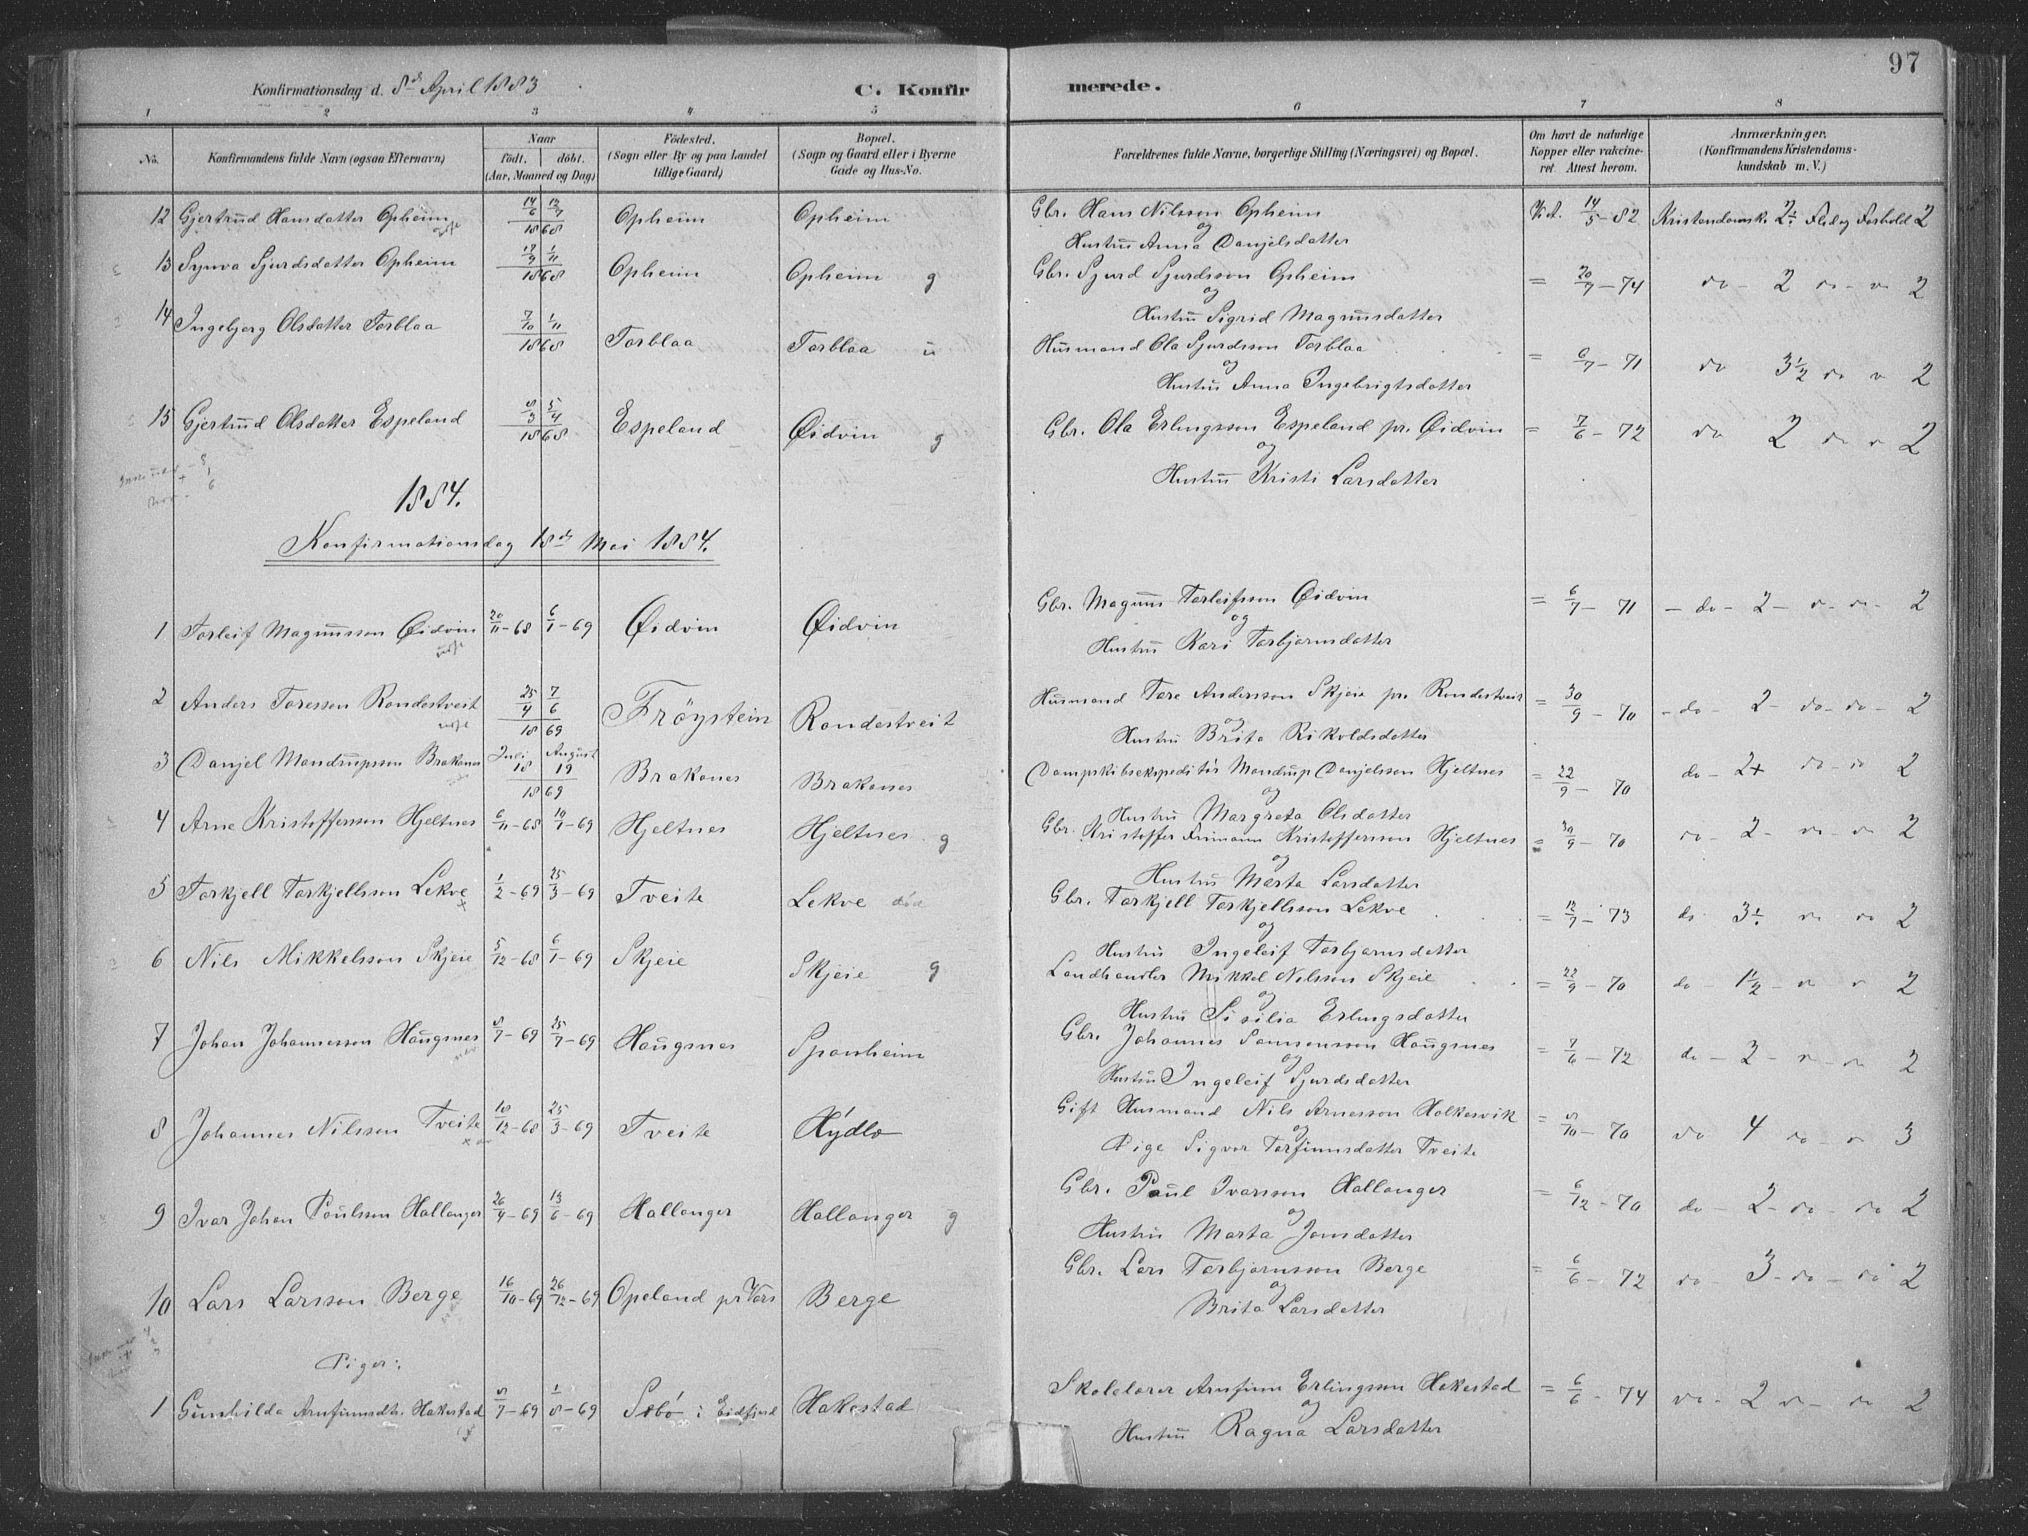 97
Konfirmationsdag d. 8de April 1883 C. Konfirmerede.
1 2 3 4 5 6 7 8
No. Konfirmandens fulde Navn (ogsaa Efternavn) Naar født. døbt. (Aar, Maaned og Dag) Födested. (Sogn eller By og paa Landet tillige Gaard) Bopæl. (Sogn og Gaard eller i Byerne Gade og Hus-No. Forældrenes fulde Navne, borgerlige Stilling (Næringsvei) og Bopæl. Om havt de naturlige Kopper eller vakcineret. Attest herom. Anmærkninger. (Konfirmandens Kristendomskundskab m. V.)
12 Gjertrud Hansdatter Opheim 14/6 12/7 1868 Opheim Opheim Gbr. Hans Nilsson Opheim 14/5 - 82 Kristendomsk. 2÷ Flid og Forhold 2
og
Hustru Anna Danjelsdatter
13 Synva Sjurdsdatter Opheim 1/11 1868 Opheim Opheim g Gbr. Sjurd Sjurdsson Opheim = 20/7 - 74 do - 2 do - do 2
og
Hustru Sigrid Magnusdatter
14 Ingebjørg Olsdatter Torblaa 7/10 1/11 1868 Torblaa Torblaa u Husmand Ola Sjurdsson Torblaa = 6/7 - 71 do 3½ do do 2
og
Hustru Anna Ingebrigtsdatter
15 Gjertrud Olsdatter Espeland 8/3 5/4 1868 Espeland Øidvin g Gbr. Ola Erlingsson Espeland pr. Øidvin = 7/6 - 72 do 2 do do 2
og
Hustru Kristi Larsdatter
1884.
Konfirmationsdag 18de Mai 1884.
1 Torleif Magnusson Øidvin 20/11 - 68 6/1 - 69 Øidvin Øidvin Gbr. Magnus Torleifsson Øidvin = 6/7 - 71 - do - 2 - do - do - 2
og
Hustru Kari Torbjørnsdatter
2 Anders Toresson Rondestveit 25/4 7/6 1869 Frøystein Rondestveit Husmand Tore Andersson Skjeie pr. Rondestveit = 30/9 - 70 - do - 2 - do - do - 2
og
Hustru Brita Rikoldsdatter
3 Danjel Mandrupsson Brakenes Juli 18 August 19 1869 Brakenes Brakenes Dampskibsekspeditør Mandrup Danjelsson Hjeltnes = 22/9 - 70 do - 2+ do - do 2
og
Hustru Margreta Olsdatter
4 Arne Kristoffersson Hjeltnes 6/11 - 68 10/1 - 69 Hjeltnes Hjeltnes g Gbr. Kristoffer Frimann Kristoffersson Hjeltnes = 30/9 - 70 do - 2 - do - do 2
og
Hustru Marta Larsdatter
5 Torkjell Torkjellsson Lekve + 1/2 - 69 25/3 - 69 Tveite Lekve død Gbr. Torkjell Torkjellsson Lekve = 12/7 - 73 do 3÷ do do 2
og
Hustru Ingeleif Torbjørnsdatter
6 Nils Mikkelsson Skjeie 5/12 - 68 6/1 - 69 Skjeie Skjeie g Landhandler Mikkel Nilsson Skjeie = 22/9 - 70 do - 1½ - do do 2
og
Hustru Sisilia Erlingsdatter
7 Johan Johannesson Haugsnes 8/7 - 69 25/7 - 69 Haugsnes Sponheim Gbr. Johannes Samsonsson Haugsnes = 7/6 - 72 do - 2 - do - do 2
og
Hustru Ingeleif Sjurdsdatter
8 Johannes Nilsson Tveite 18/12 - 68 25/3 - 69 Tveite Hydlo Gift Husmand Nils Arnesson Holkesvik = 8/10 - 70 do 4 do - do 3
og
Pige Sigvor Torfinnsdatter Tveite
9 Ivar Johan Poulsson Hallanger 26/4 - 69 13/6 - 69 Hallanger Hallanger g Gbr. Paul Ivarsson Hallanger = 6/12 - 70 do - 2 - do - do 2
og
Hustru Marta Jonsdatter
10 Lars Larsson Berge 16/10 - 69 26/12 - 69 Opeland pr Vors Berge Gbr. Lars Torbjørnsson Berge = 6/6 - 72 do 3 - do - do 2
og
Brita Larsdatter
Piger:
1 Gunhilda Arnfinnsdtr. Hakestad 8/7 - 69 1/8 - 69 Sæbø i Eidfjord Hakestad Skolelærer Arnfinn Erlingsson Hakestad = 6/6 - 74 do - 2 do - do 2
og
Hustru Ragna Larsdatter